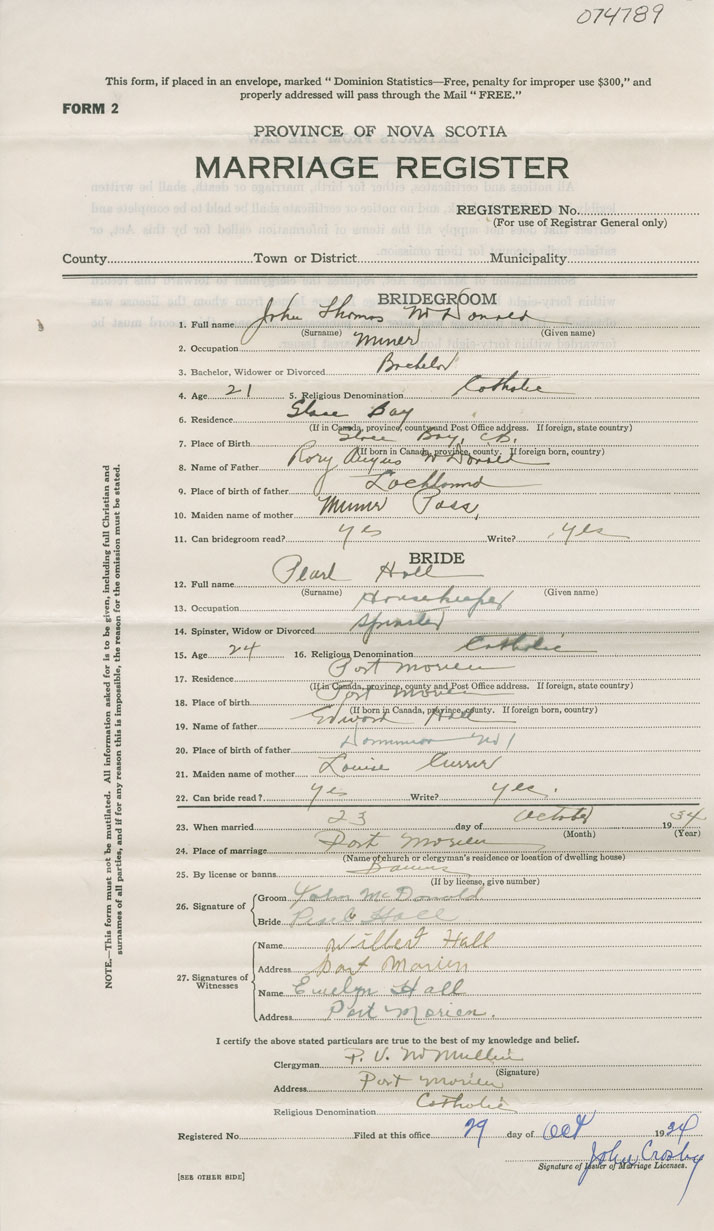 074789
This form, if placed in an envelope, marked “ Dominion Statistics—Free, penalty for improper use $300,” and
properly addressed will pass through the Mail “ FREE.”
FORM 2
PROVINCE OF NOVA SCOTIA
MARRIAGE REGISTER
REGISTERED No.
(For use of Registrar General only)
County Town or District Municipality
BRIDEGROOM
1. Full name John Thomas McDonald
(Surname) (Given name)
2. Occupation Miner
3. Bachelor, Widower or Divorced Bachelor
4. Age 21 5. Religious Denomination Catholic
6. Residence Glace Bay
(If in Canada, province, county and Post Office address. If foreign, state country)
7. Place of Birth Glace Bay, C.B.
(If born in Canada, province, county. If foreign born, country)
8. Name of Father Rory Angus McDonald
9. Place of birth of father Lochlomond
10. Maiden name of mother
11. Can bridegroom read? yes Write? yes
BRIDE
12. Full name Pearl Hall
(Surname) (Given name)
13. Occupation Housekeeper
14. Spinster, Widow or Divorced Spinster
15. Age 24 16. Religious Denomination Catholic
17. Residence Port Morien
(If in Canada, province, county and Post Office address. If foreign, state country)
18. Place of birth Port Morien
(If born in Canada, province, county. If foreign born, country)
19. Name of father Edward Hall
20. Place of birth of father Dominion No 1
21. Maiden name of mother Louise
22. Can bride read? yes Write? yes.
23. When married 23 day of October 1934
(Month) (Year)
24. Place of marriage Port Morien
(Name of church or clergyman's residence or location of dwelling house)
25. By license or banns Banns
(If by license, give number)
26. Signature of Groom John McDonald
Bride Pearl Hall
27. Signatures of Witnesses Name Wilbert Hall
Address Port Morien
Name Evelyn Hall
Address Port Morien.
I certify the above stated particulars are true to the best of my knowledge and belief.
Clergyman P. V. McMullin
(Signature)
Address Port Morien
Religious Denomination Catholic
Registered No. Filed at this office 29 day of Oct 1934
John Crosby
Signature of Issuer of Marriage Licenses.
[SEE OTHER SIDE]
NOTE.—This form must not be mutilated. All information asked for is to be given, including full Christian and
surnames of all parties, and if for any reason this is impossible, the reason for the omission must be stated.